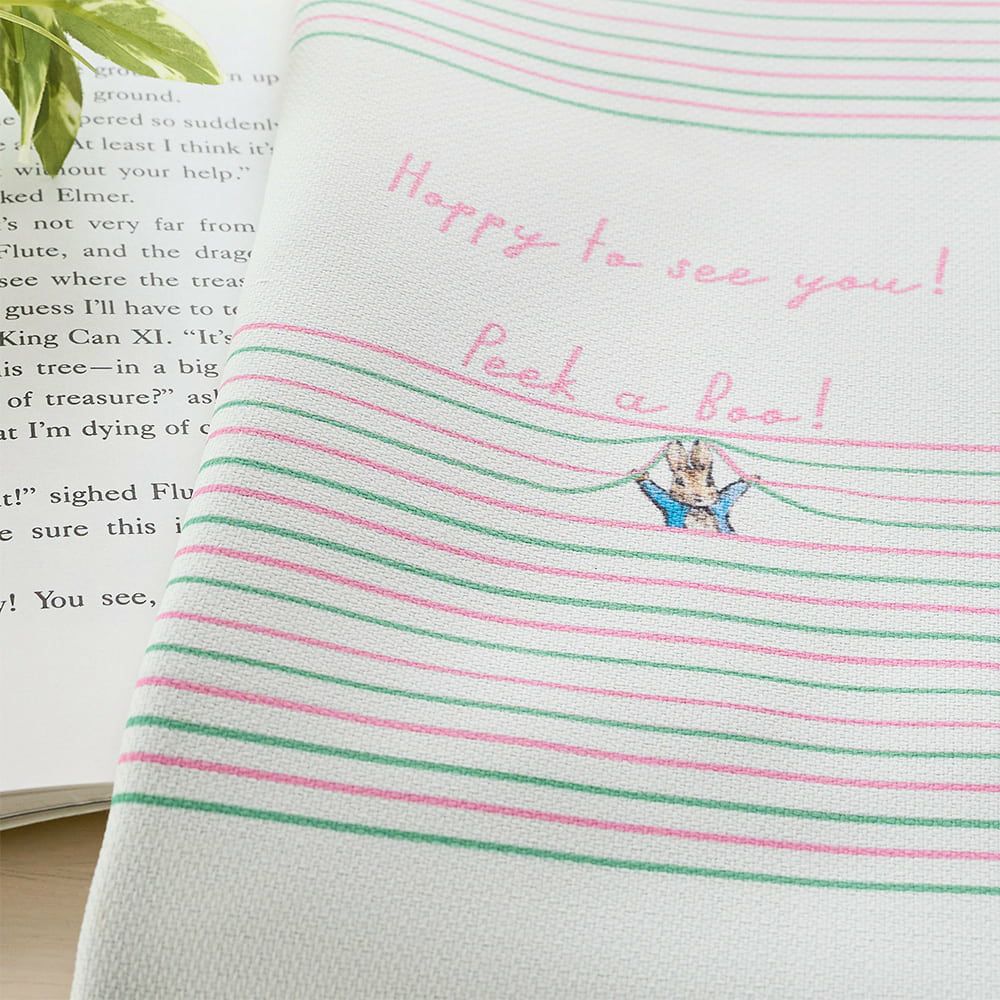 up
ground.
so suddenly
At least I think it's
without your help."
ked Elmer.
's not very far from
Flute, and the drag
see where the treas
guess I'll have to t
King Can XI. "It's
is tree—in a big
of treasure?" as
at I'm dying of c
t!" sighed Flu
e sure this i
y! You see,
Hoppy to see you!
Peek a Boo!